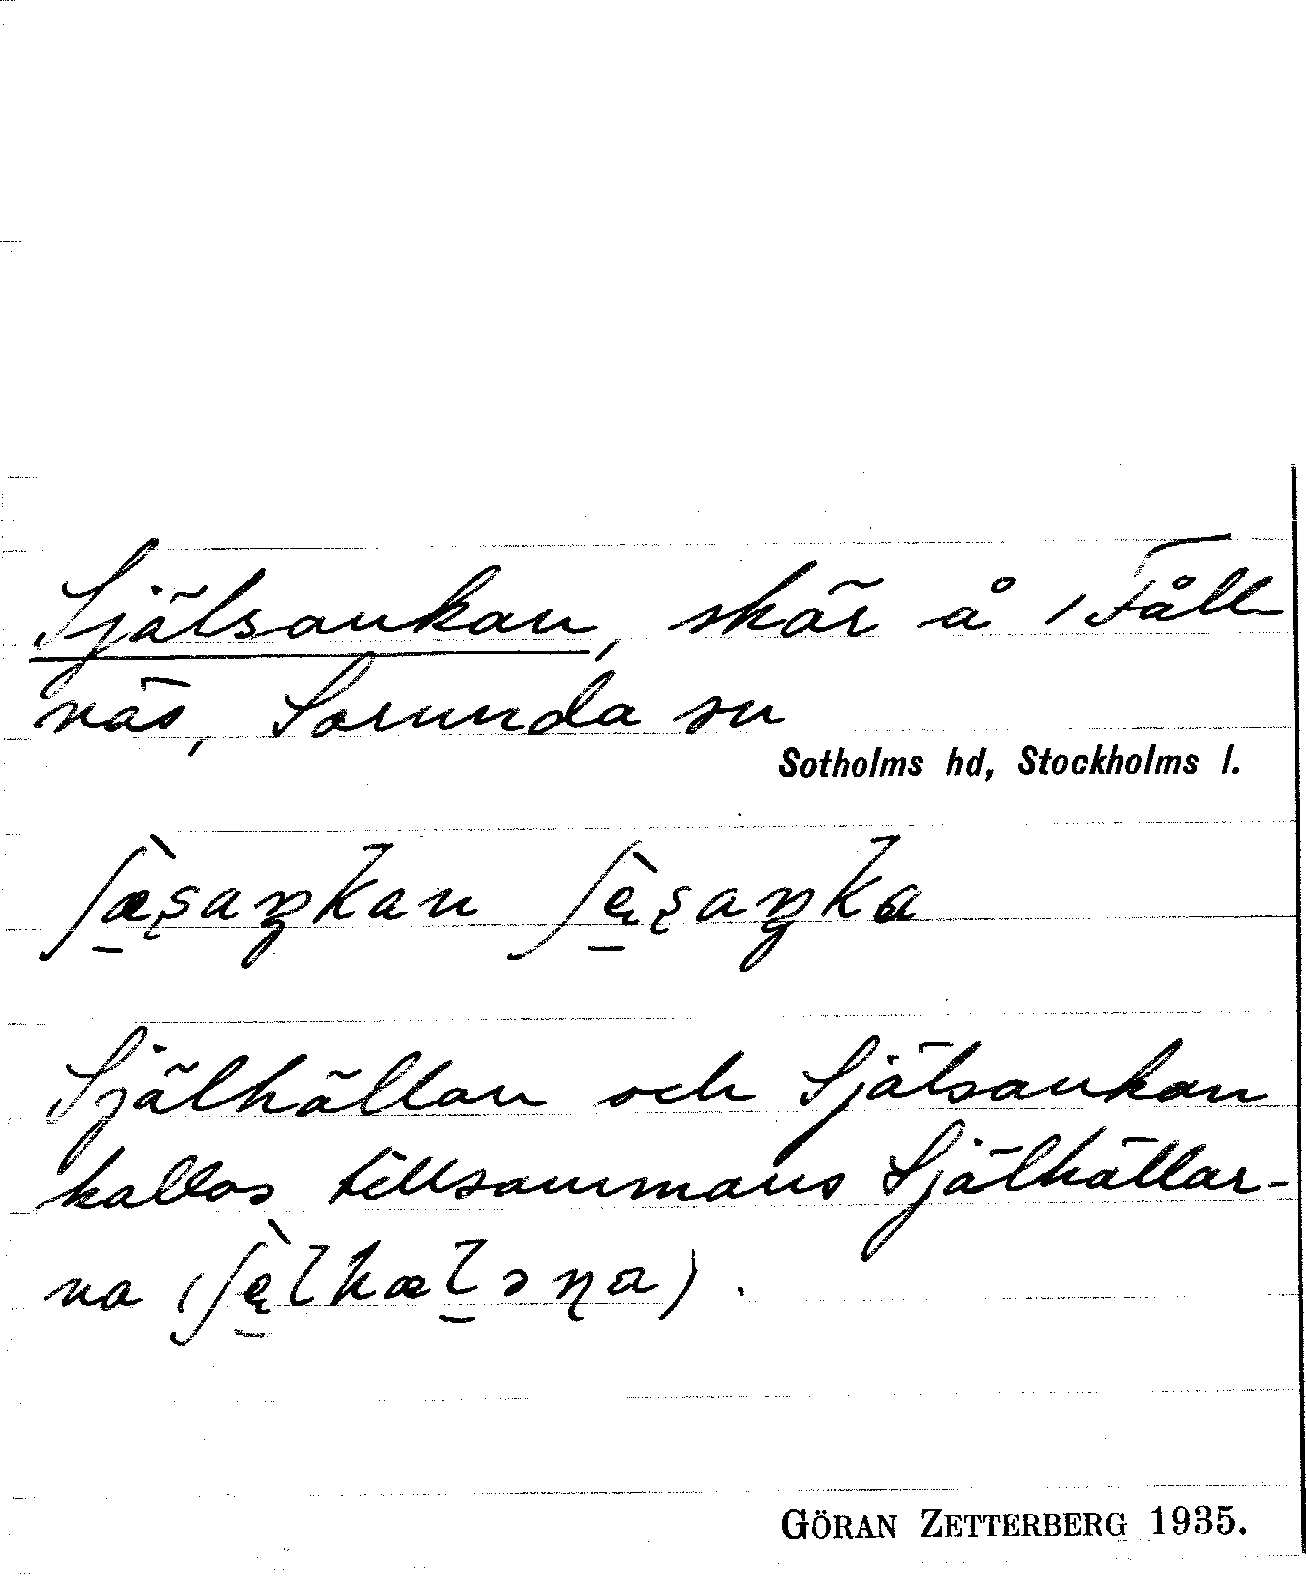 Själsankan, skär å 1 Fåll-
näs, Sorunda sn
Sotholms hd, Stockholms l.
ʃæ̀ʂaŋkan ʃę̀ʂaŋka
Själhällan och Själsankan
kallas tillsammans Själhällar-
na (ʃę̀lhæləɳa).
GÖRAN ZETTERBERG 1935.